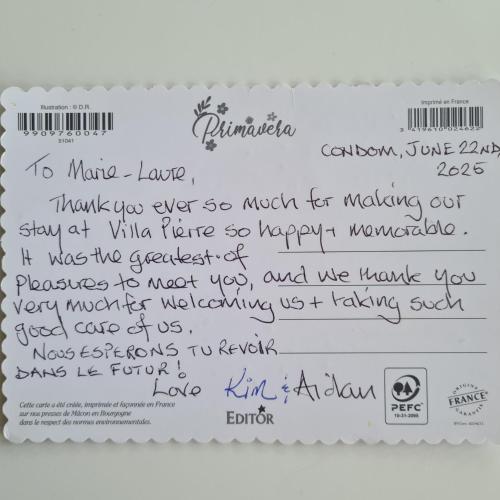 Illustration : © D.R.
9909760047
51041
Primavera
Imprimé en France
3 419610 024622
CONDOM, JUNE 22ND,
2025
To Marie-Laure,
Thank you ever so much for making our
stay at Villa Pierre so happy + memorable.
It was the greatest of
pleasures to meet you, and we thank you
very much for welcoming us + taking such
good care of us.
NOUS ESPERONS TU REVOIR
DANS LE FUTUR !
Love Kim & Aidan
Cette carte a été créée, imprimée et façonnée en France
sur nos presses de Mâcon en Bourgogne
dans le respect des normes environnementales.
EDITOR
PEFC
10-31-2065
ORIGINE
FRANCE
GARANTIE